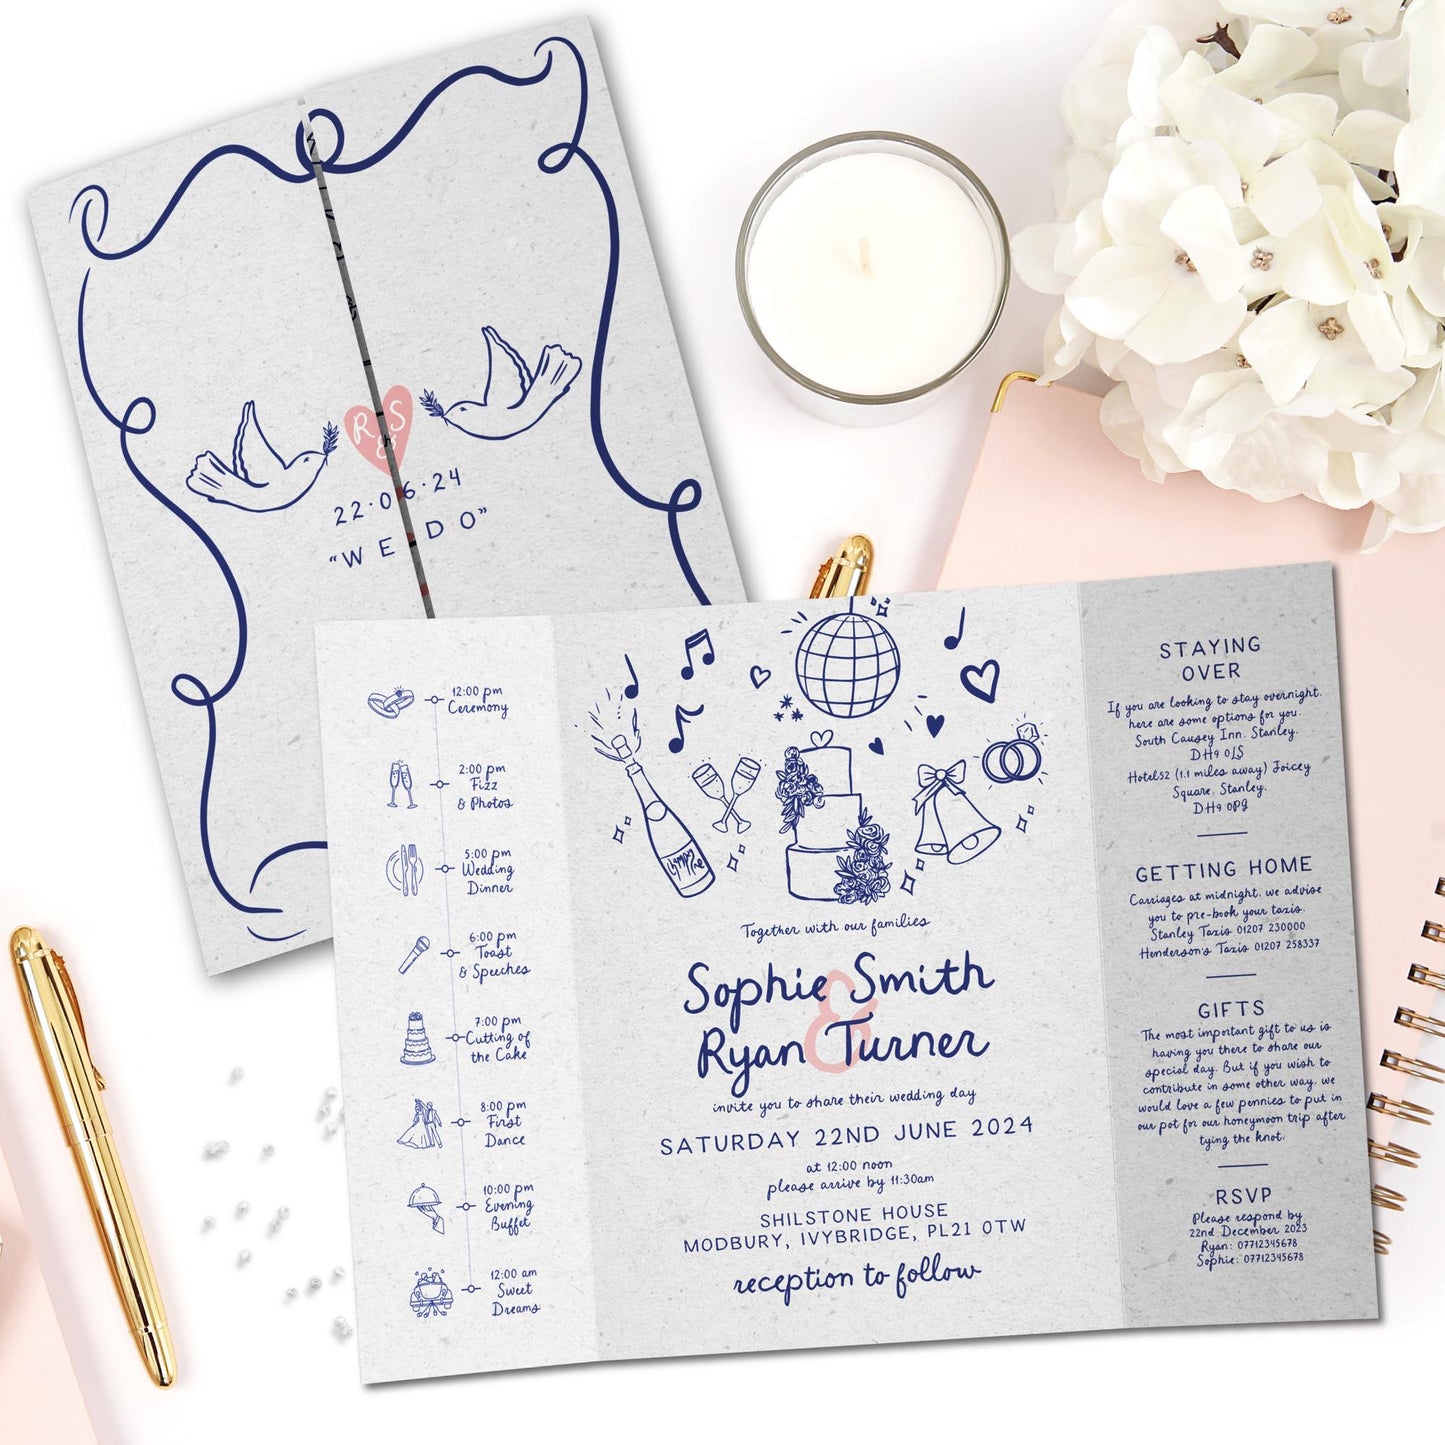 R & S
22·06·24
"WE DO"
12:00 pm
Ceremony
2:00 pm
Fizz
& Photos
5:00 pm
Wedding
Dinner
6:00 pm
Toast
& Speeches
7:00 pm
Cutting of
the Cake
8:00 pm
First
Dance
10:00 pm
Evening
Buffet
12:00 am
Sweet
Dreams
Together with our families
Sophie Smith
&
Ryan Turner
invite you to share their wedding day
SATURDAY 22ND JUNE 2024
at 12:00 noon
please arrive by 11:30am
SHILSTONE HOUSE
MODBURY, IVYBRIDGE, PL21 0TW
reception to follow
STAYING
OVER
If you are looking to stay overnight,
here are some options for you.
South Causey Inn, Stanley,
DH9 0LS
Hotel52 (1.1 miles away) Joicey
Square, Stanley,
DH9 0PG
GETTING HOME
Carriages at midnight, we advise
you to pre-book your taxis.
Stanley Taxis 01207 230000
Henderson's Taxis 01207 258337
GIFTS
The most important gift to us is
having you there to share our
special day. But if you wish to
contribute in some other way, we
would love a few pennies to put in
our pot for our honeymoon trip after
tying the knot.
RSVP
Please respond by
22nd December 2023
Ryan: 07712345678
Sophie: 07712345678